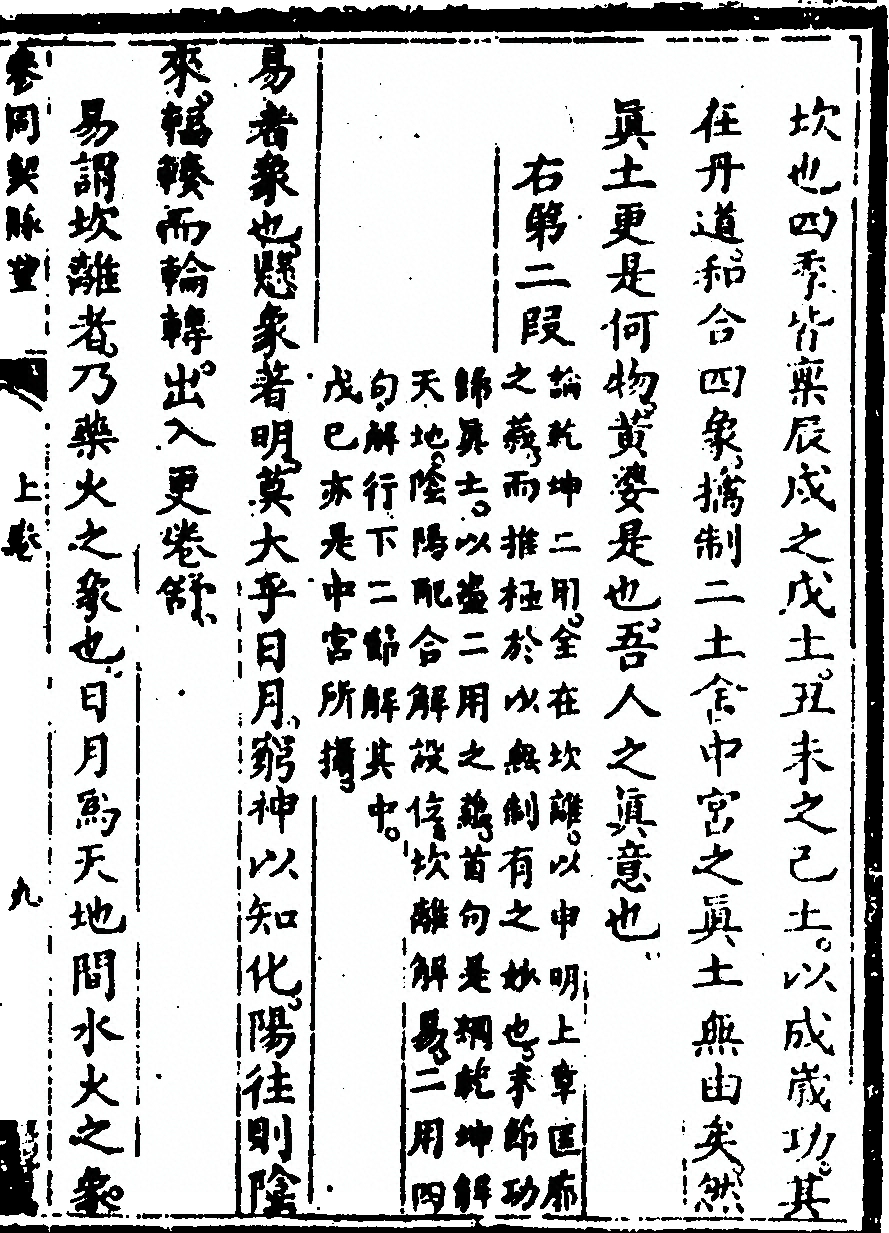 坎也四季皆稟辰戌之戊土。丑未之己土。以成歲功。其
在丹道。和合四象。擒制二土舍中宮之眞土無由矣。然
眞土更是何物。黃婆是也。吾人之眞意也。
右第二段
論乾坤二用。全在坎離。以申明上章匡廓
之義。而推極於以無制有之妙也。末節功
歸眞土。以盡二用之蘊。首句是綱乾坤解
天地。陰陽配合解設位。坎離解易。二用四
句。解行下二節解其中。
戊己亦是中宮所攝。
易者象也。懸象著明。莫大乎日月。窮神以知化。陽往則陰
來。輻輳而輪轉。出入更卷舒。
易謂坎離者。乃藥火之象也。日月爲天地間水火之象。
參同契脉望
上卷
九